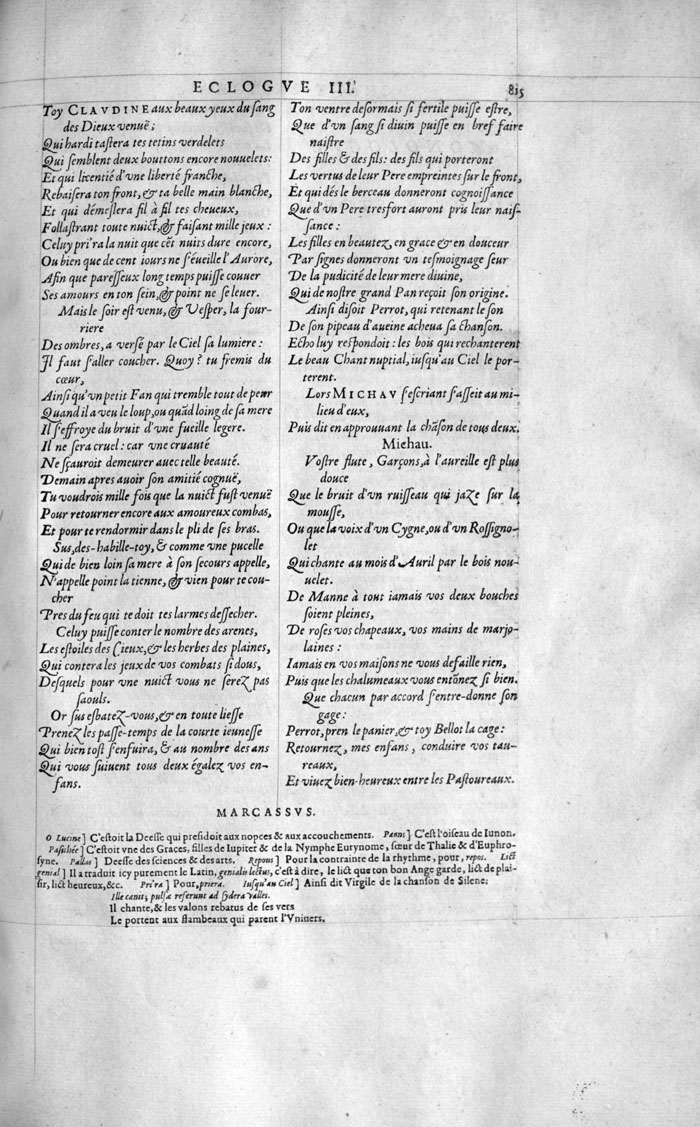 ECLOGVE III.
815
Toy CLAVDINE aux beaux yeux du sang
des Dieux venuë;
Qui hardi tastera tes tetins verdelets
Qui semblent deux bouttons encore nouuelets:
Et qui licentié d'vne liberté franche,
Rebaisera ton front, & ta belle main blanche,
Et qui démeslera fil à fil tes cheueux,
Follastrant toute nuict, & faisant mille jeux:
Celuy pri'ra la nuit que cét nuits dure encore,
Ou bien que de cent iours ne s'éueille l'Aurore,
Afin que paresseux long temps puisse couuer
Ses amours en ton sein, & point ne se leuer.
Mais le soir est venu, & Vesper, la four-
riere
Des ombres, a versé par le Ciel sa lumiere:
Il faut s'aller coucher. Quoy? tu fremis du
cœur,
Ainsi qu'vn petit Fan qui tremble tout de peur
Quand il a veu le loup, ou quãd loing de sa mere
Il s'effroye du bruit d'vne fueille legere.
Il ne sera cruel: car vne cruauté
Ne sçauroit demeurer auec telle beauté.
Demain apres auoir son amitié cognuë,
Tu voudrois mille fois que la nuict fust venuë
Pour retourner encore aux amoureux combas,
Et pour te rendormir dans le pli de ses bras.
Sus, des-habille-toy, & comme vne pucelle
Qui de bien loin sa mere à son secours appelle,
N'appelle point la tienne, & vien pour te cou-
cher
Pres du feu qui te doit tes larmes dessecher.
Celuy puisse conter le nombre des arenes,
Les estoiles des Cieux, & les herbes des plaines,
Qui contera les jeux de vos combats si dous,
Desquels pour vne nuict vous ne serez pas
saouls.
Or sus esbatez-vous, & en toute liesse
Prenez les passe-temps de la courte ieunesse
Qui bien tost s'enfuira, & au nombre des ans
Qui vous suiuent tous deux égalez vos en-
fans.
Ton ventre desormais si fertile puisse estre,
Que d'vn sang si diuin puisse en bref faire
naistre
Des filles & des fils: des fils qui porteront
Les vertus de leur Pere empreintes sur le front,
Et qui dés le berceau donneront cognoissance
Que d'vn Pere tresfort auront pris leur nais-
sance:
Les filles en beautez, en grace & en douceur
Par signes donneront vn tesmoignage seur
De la pudicité de leur mere diuine,
Qui de nostre grand Pan reçoit son origine.
Ainsi disoit Perrot, qui retenant le son
De son pipeau d'aueine acheua sa chanson.
Echo luy respondoit: les bois qui rechanterent
Le beau Chant nuptial, iusqu'au Ciel le por-
terent.
Lors MICHAV s'escriant s'asseit au mi-
lieu d'eux,
Puis dit en approuuant la chãson de tous deux.
Michau.
Vostre flute, Garçons, à l'aureille est plus
douce
Que le bruit d'vn ruisseau qui jaze sur la
mousse,
Ou que la voix d'vn Cygne, ou d'vn Rossigno-
let
Qui chante au mois d'Auril par le bois nou-
uelet.
De Manne à tout iamais vos deux bouches
soient pleines,
De roses vos chapeaux, vos mains de marjo-
laines:
Iamais en vos maisons ne vous defaille rien,
Puis que les chalumeaux vous entõnez si bien.
Que chacun par accord s'entre-donne son
gage:
Perrot, pren le panier, & toy Bellot la cage:
Retournez, mes enfans, conduire vos tau-
reaux,
Et viuez bien-heureux entre les Pastoureaux.
MARCASSVS.
O Lucine] C'estoit la Deesse qui presidoit aux nopces & aux accouchements. Paons] C'est l'oiseau de Iunon.
Pasithée] C'estoit vne des Graces, filles de Iupiter & de la Nymphe Eurynome, sœur de Thalie & d'Euphro-
syne. Pallas] Deesse des sciences & des arts. Repous] Pour la contrainte de la rhythme, pour, repos. Lict
genial] Il a traduit icy purement le Latin, genialis lectus, c'est à dire, le lict que ton bon Ange garde, lict de plai-
sir, lict heureux, &c. Pri'ra] Pour, priera. Iusqu'au Ciel] Ainsi dit Virgile de la chanson de Silene:
Ille canit, pulsæ referunt ad sydera valles.
Il chante, & les valons rebatus de ses vers
Le portent aux flambeaux qui parent l'Vniuers.